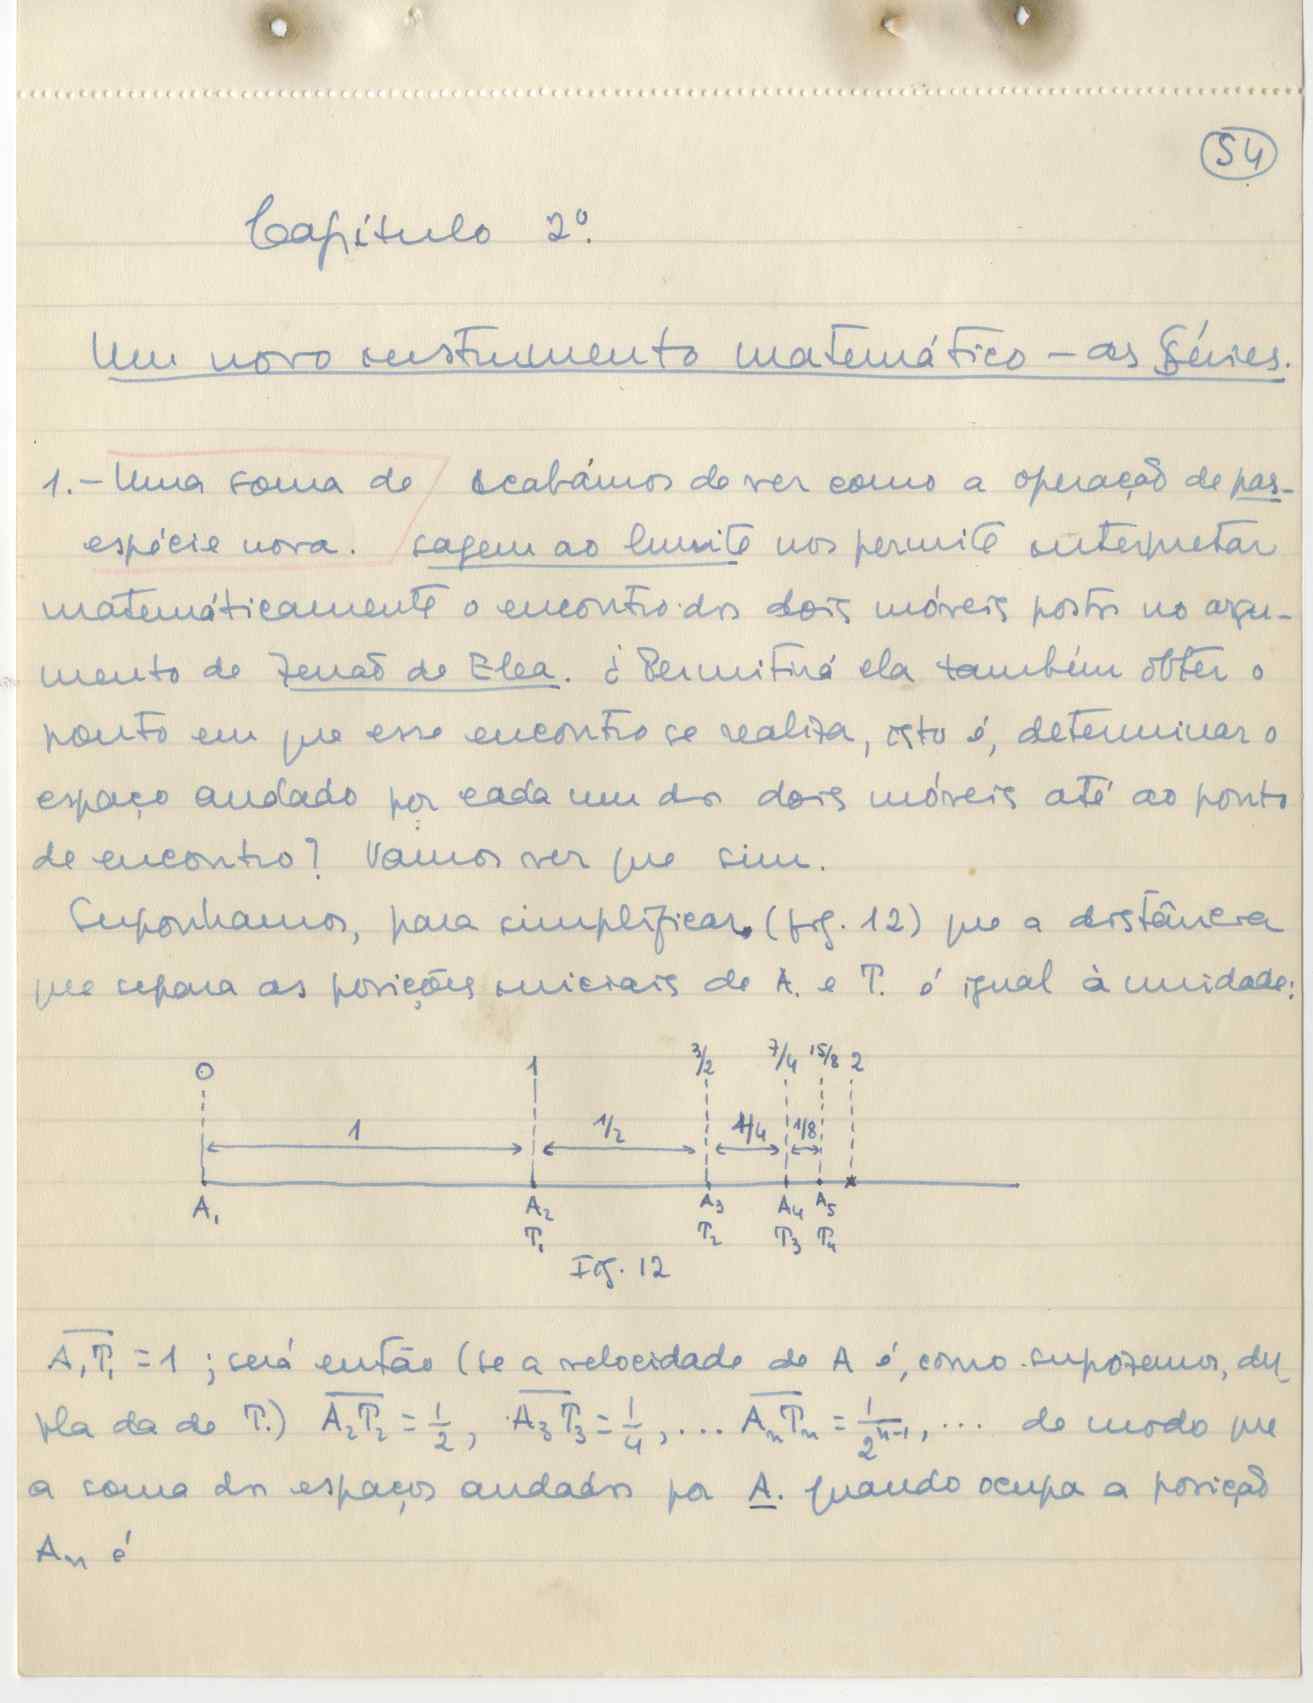 54
Capítulo 2º.
Um novo instrumento matemático – as Séries.
1.– Uma soma de espécie nova.
Acabámos de ver como a operação de pas-
sagem ao limite nos permite interpretar
matemáticamente o encontro dos dois móveis postos no argu-
mento de Zenão de Elea. ¿Permitirá ela também obter o
ponto em que esse encontro se realiza, isto é, determinar o
espaço andado por cada um dos dois móveis até ao ponto
de encontro? Vamos ver que sim.
Suponhamos, para simplificar, (fig. 12) que a distância
que separa as posições iniciais de A. e T. é igual à unidade:
0 1 3/2 7/4 15/8 2
1 1/2 1/4 1/8
A₁ A₂ A₃ A₄ A₅
T₁ T₂ T₃ T₄
Fig. 12
A₁T₁ = 1 ; será então (se a velocidade de A é, como supozemos, du-
pla da de T.) A₂T₂ = 1/2, A₃T₃ = 1/4, ... AₙTₙ = 1/2ⁿ⁻¹, ... de modo que
a soma dos espaços andados por A. quando ocupa a posição
Aₙ é